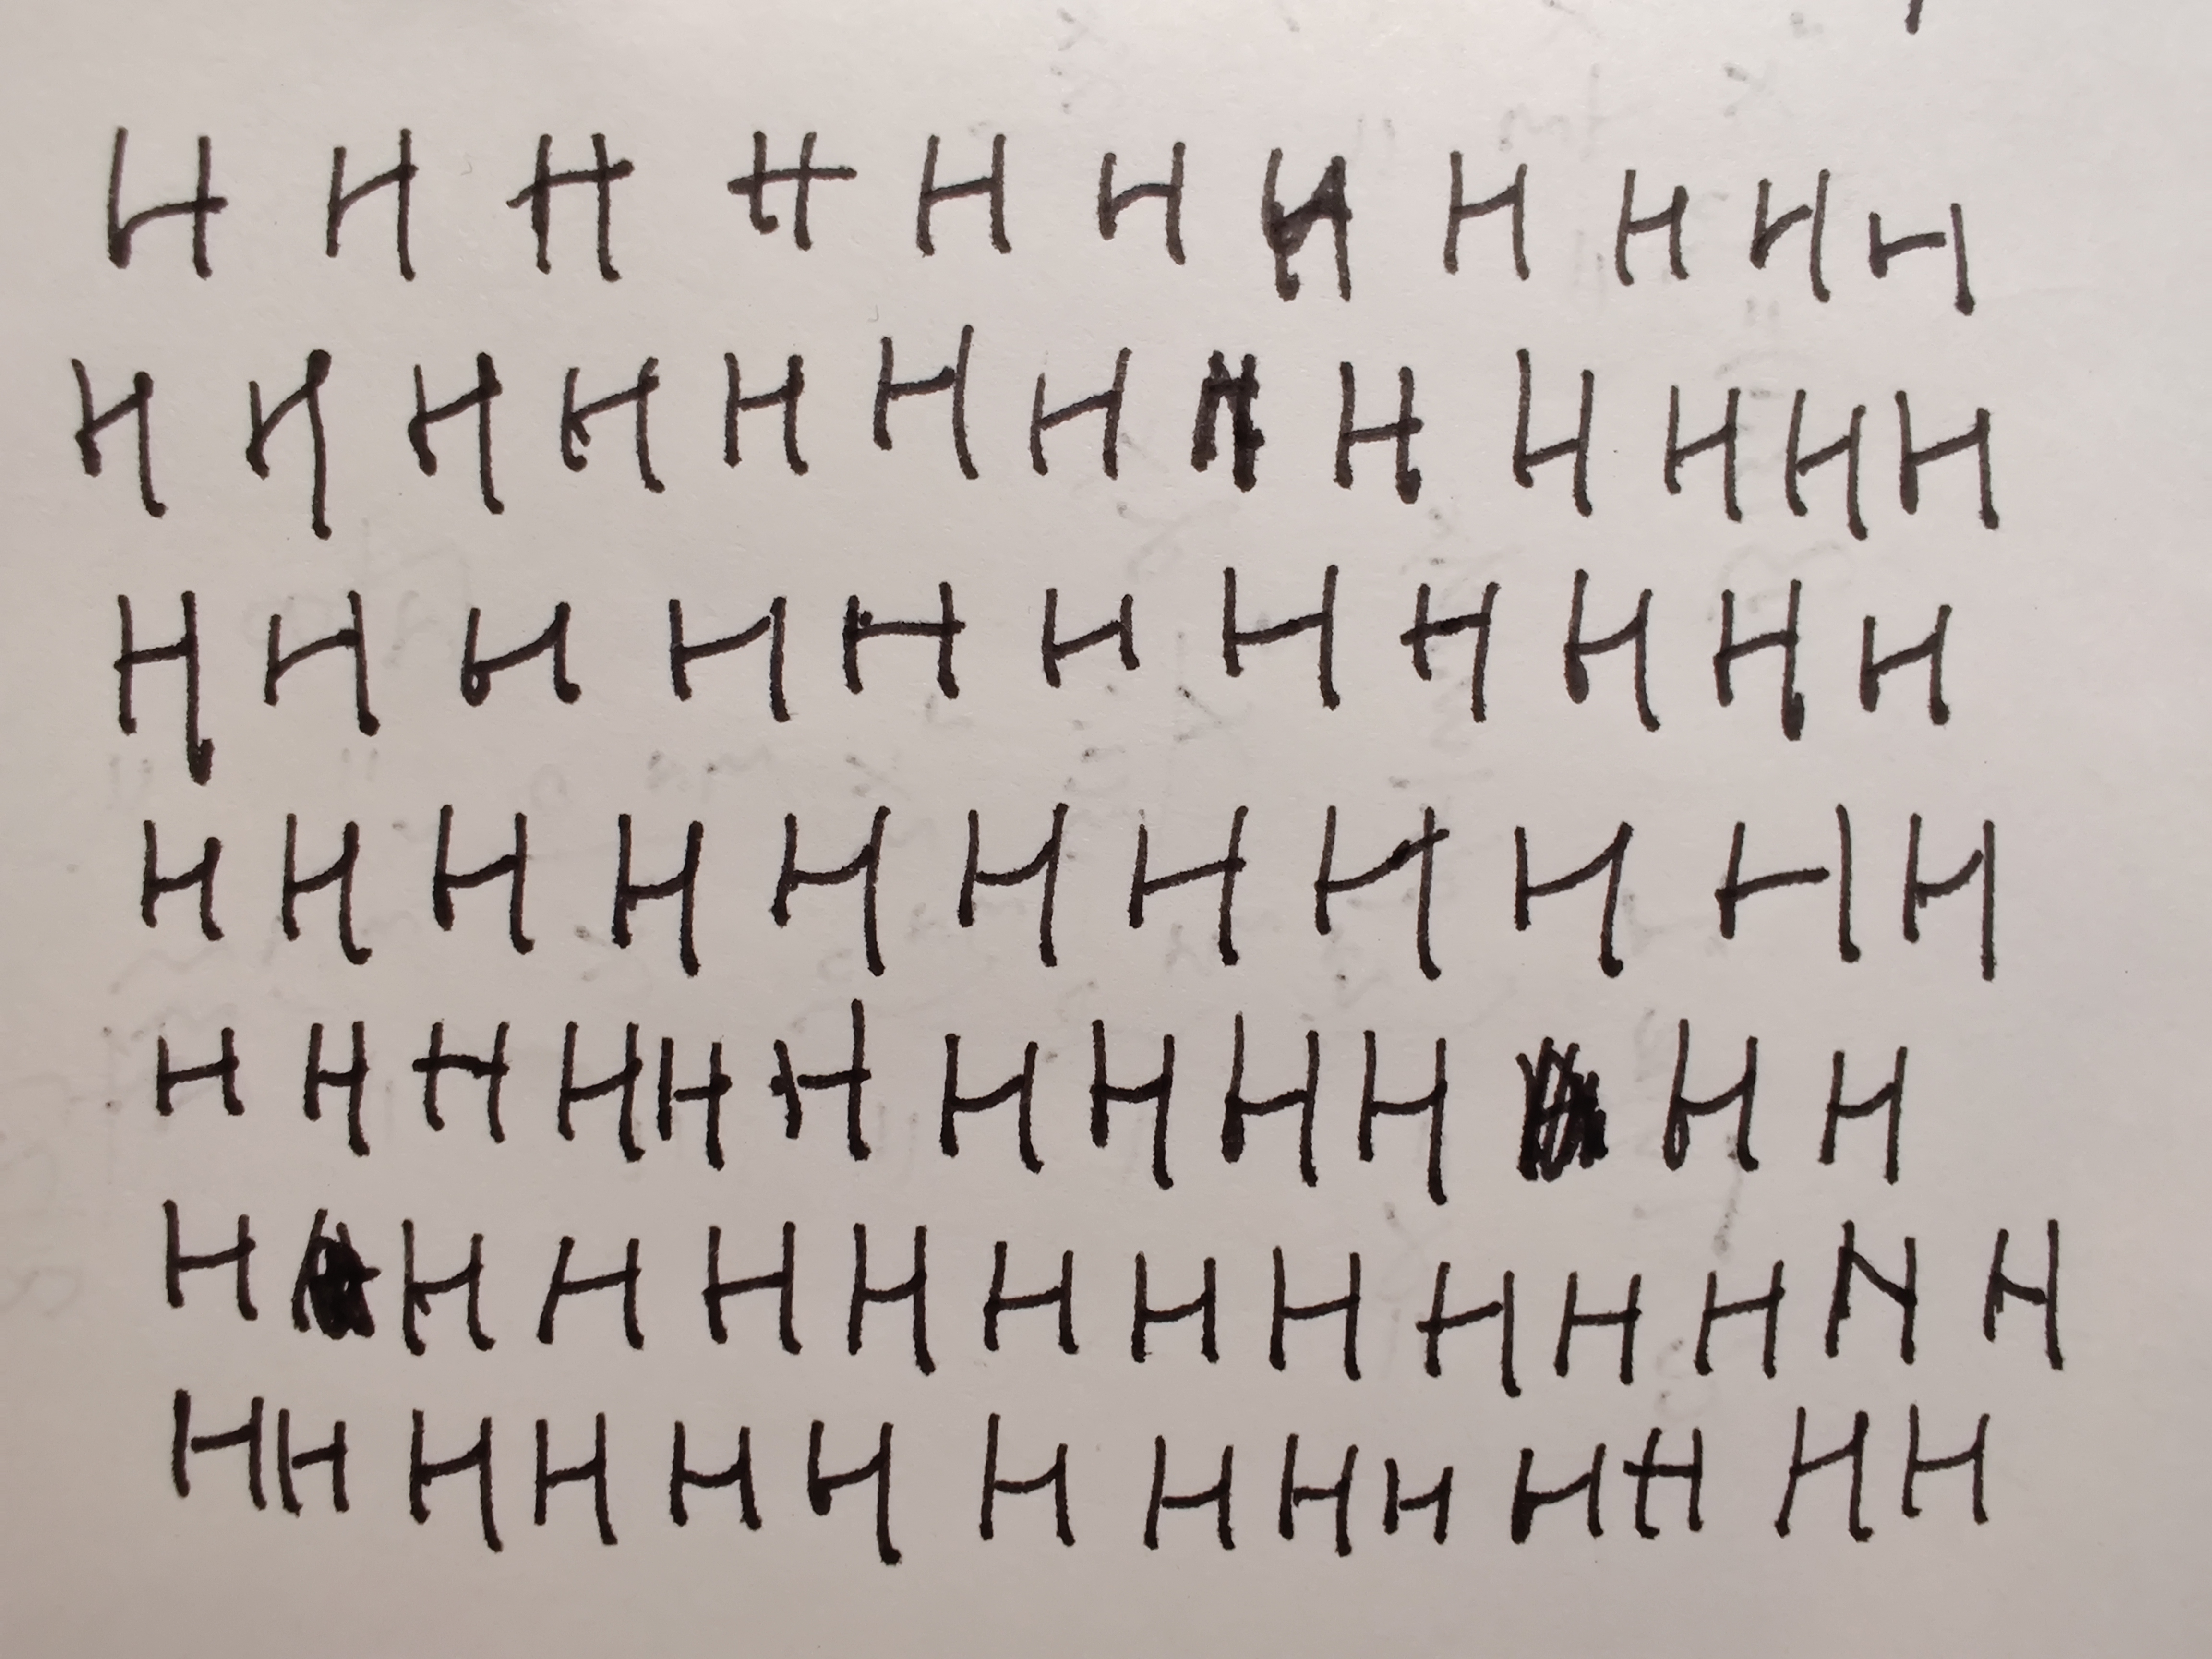 H H H H H H H H H H H
H H H H H H H H H H H H H
H H H H H H H H H H H
H H H H H H H H H H H
H H H H H H H H H H H H
H H H H H H H H H H H N H
H H H H H H H H H H H H H H